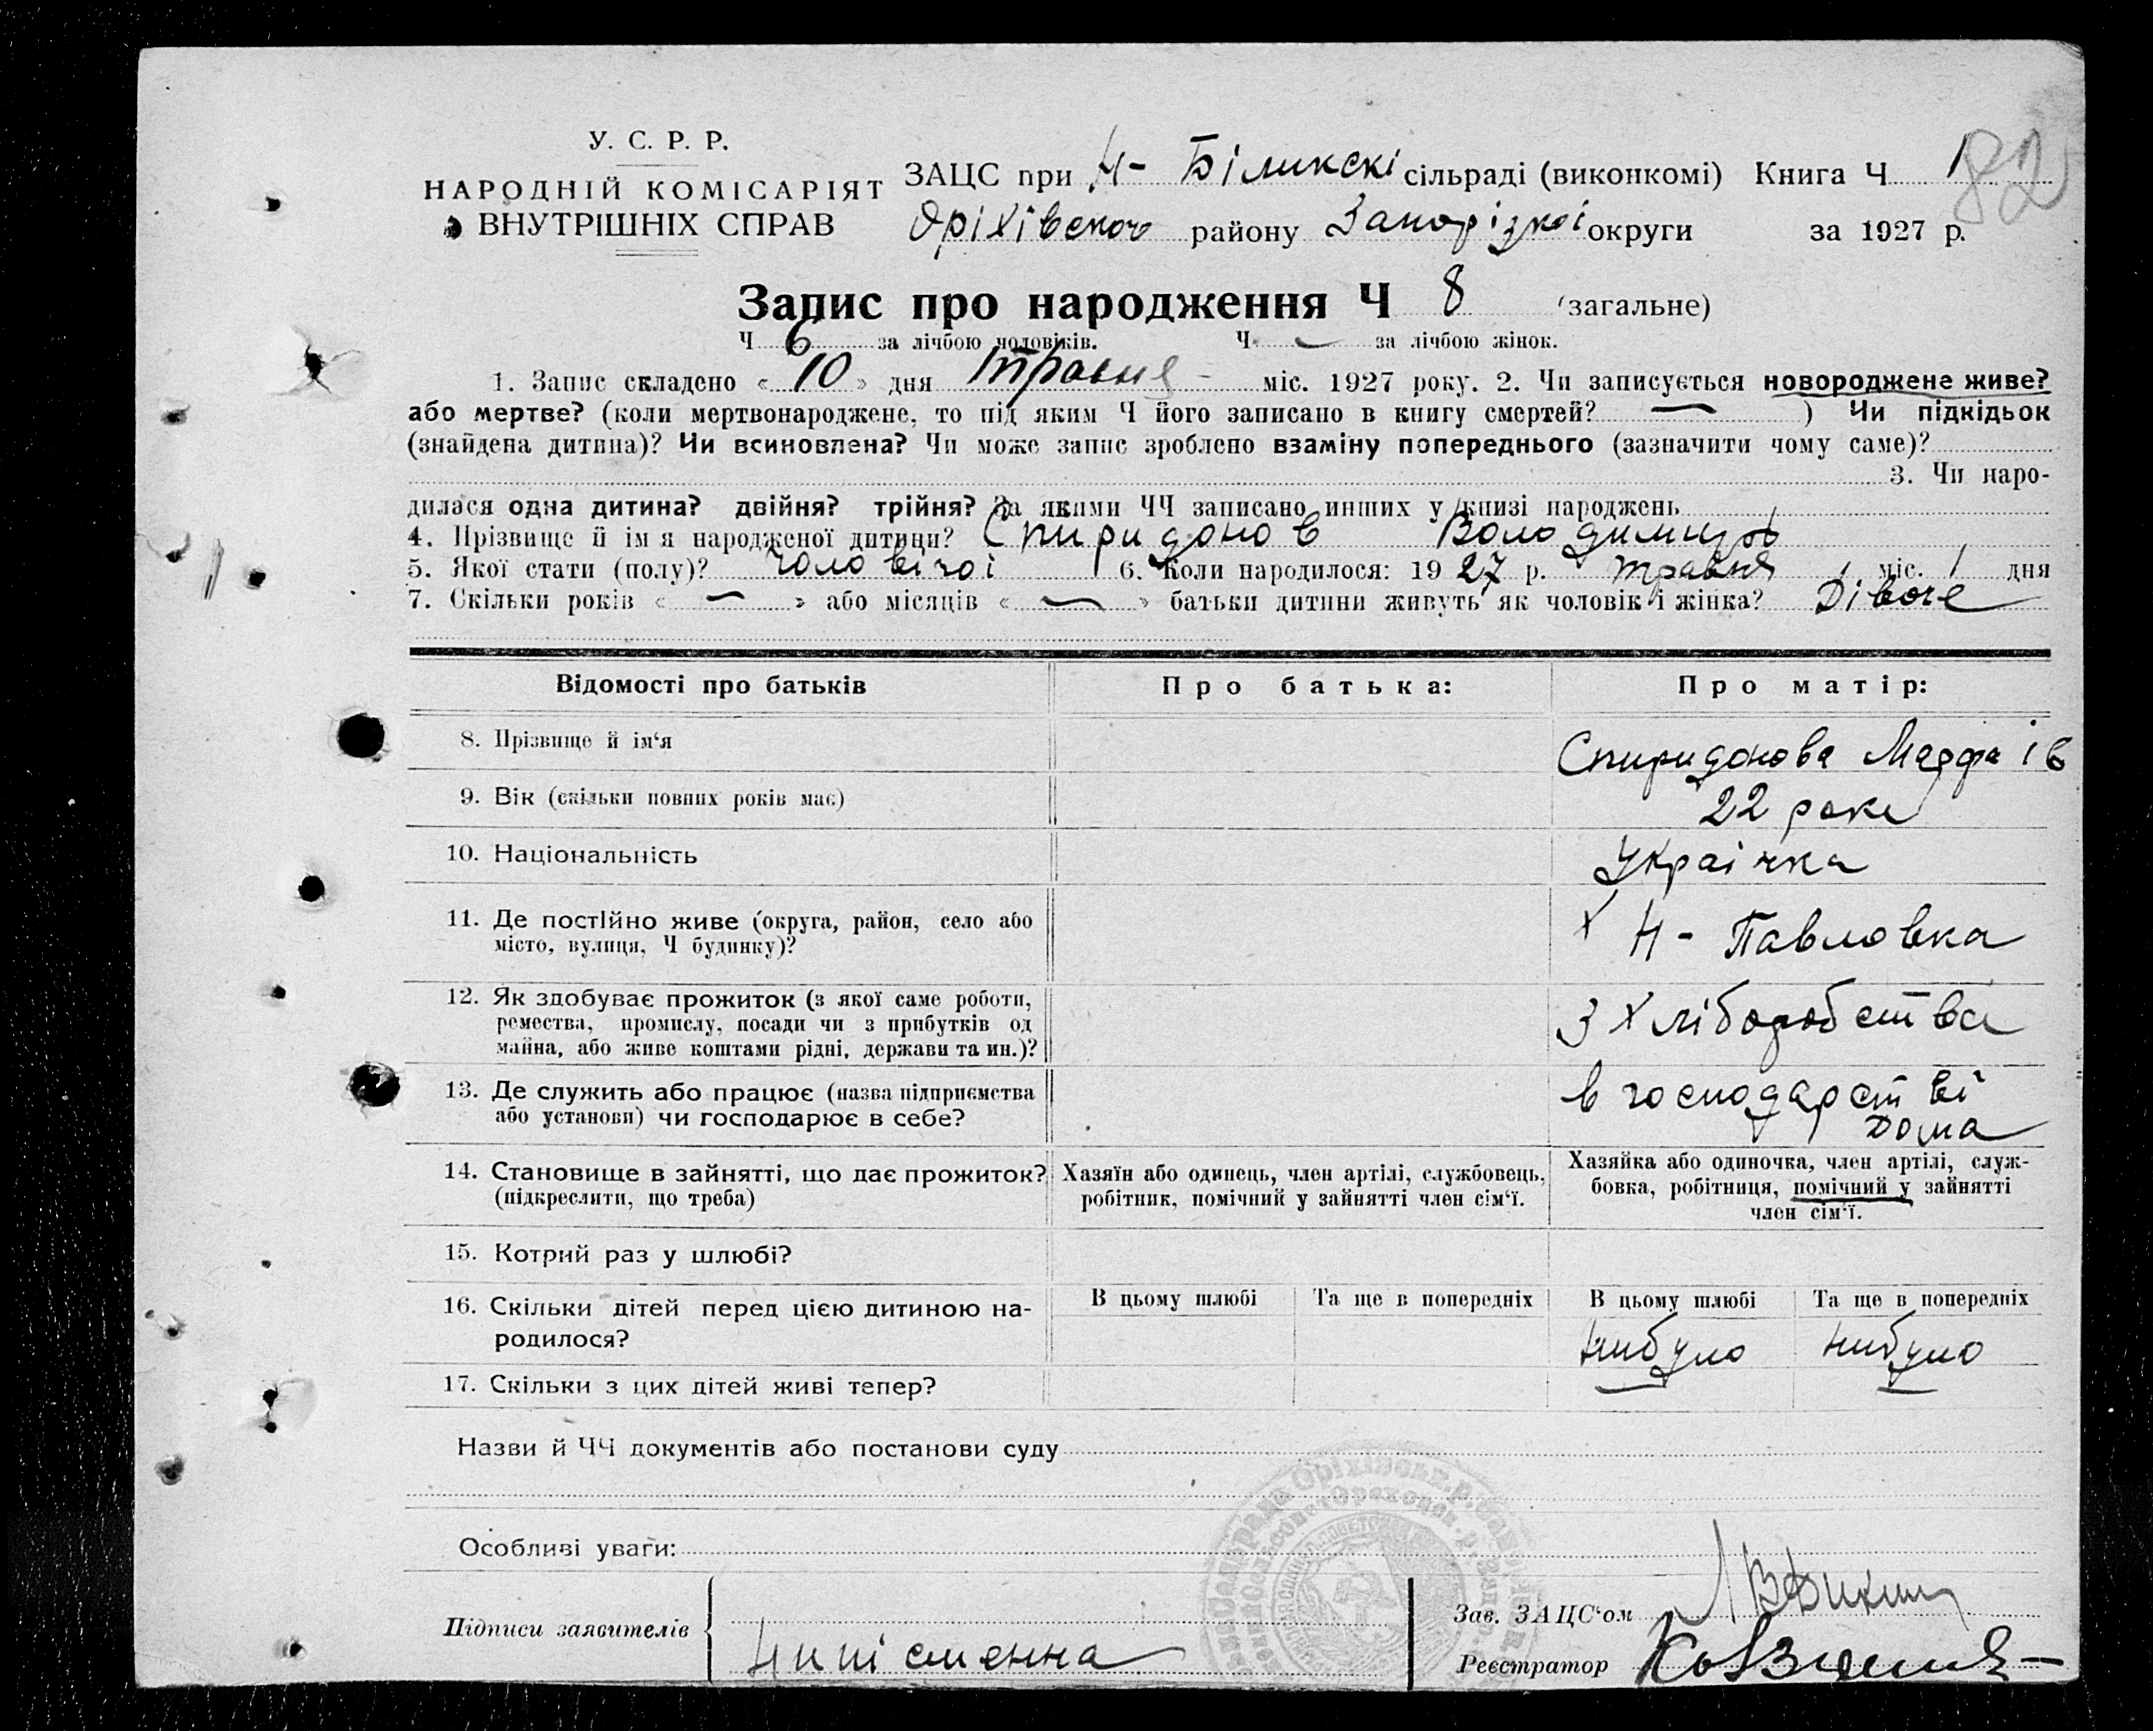 У. С. Р. Р.
НАРОДНІЙ КОМІСАРІЯТ
ВНУТРІШНІХ СПРАВ
ЗАЦС при Н- Біликскі сільраді (виконкомі) Книга Ч 1
82
Оріхівского району Запорізкоі округи за 1927 р.
Запис про народження Ч 8 (загальне)
Ч 6 за лічбою чоловіків. Ч — за лічбою жінок.
1. Запис складено « 10 » дня травня - міс. 1927 року. 2. Чи записується новороджене живе?
або мертве? (коли мертвонароджене, то під яким Ч його записано в книгу смертей? — ) Чи підкідьок
(знайдена дитина)? Чи всиновлена? Чи може запис зроблено взаміну попереднього (зазначити чому саме)?
3. Чи наро-
дилася одна дитина? двійня? трійня? За якими ЧЧ записано инших у книзі народжень
4. Прізвище й ім я народженої дитини? Спиридонов Володимиръ
5. Якої стати (полу)? чоловічоі 6. Коли народилося: 1927 р. травня міс. 1 дня
7. Скільки років « — » або місяців « — » батьки дитини живуть як чоловік і жінка? Дівоче
Відомості про батьків Про батька: Про матір:
8. Прізвище й ім‘я Спиридонова Марфа ів
9. Вік (скільки повних років має) 22 роки
10. Національність Украінка
11. Де постійно живе (округа, район, село або
місто, вулиця, Ч будинку)? Х Н- Павловка
12. Як здобуває прожиток (з якої саме роботи,
ремества, промислу, посади чи з прибутків од
майна, або живе коштами рідні, держави та ин.)? З Хліборобства
13. Де служить або працює (назва підприємства
або установи) чи господарює в себе? в господарстві
Дома
14. Становище в зайнятті, що дає прожиток?
(підкреслити, що треба)
Хазяїн або одинець, член артілі, службовець,
робітник, помічний у зайнятті член сім‘ї.
Хазяйка або одиночка, член артілі, служ-
бовка, робітниця, помічний у зайнятті
член сім‘ї.
15. Котрий раз у шлюбі?
16. Скільки дітей перед цією дитиною на-
родилося?
В цьому шлюбі Та ще в попередніх В цьому шлюбі Та ще в попередніх
нибуло нибуло
17. Скільки з цих дітей живі тепер?
Назви й ЧЧ документів або постанови суду
Особливі уваги:
Підписи заявителів
Нипісменна
Зав. ЗАЦС‘ом
Реєстратор